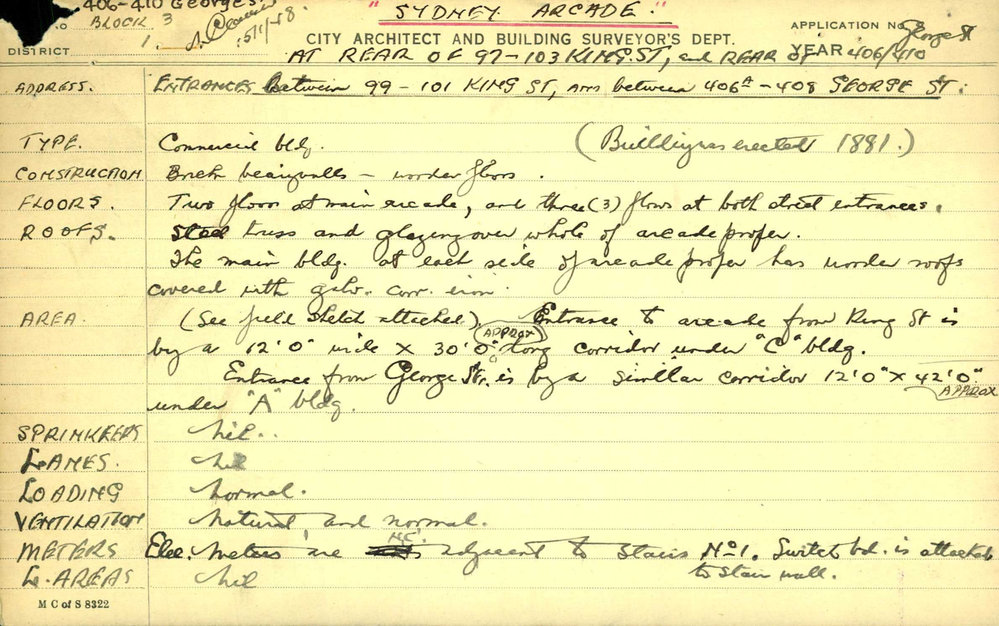 406-410 George St
BLOCK 3
1.
15/1/48
"SYDNEY ARCADE"
CITY ARCHITECT AND BUILDING SURVEYOR'S DEPT.
APPLICATION No.
George St
DISTRICT
AT REAR OF 97-103 KING ST, and REAR OF 406/410
YEAR
ADDRESS. ENTRANCES between 99 - 101 KING ST, and between 406A - 408 GEORGE ST.
TYPE. Commercial bldg. (Building was erected 1881.)
CONSTRUCTION Brick bearing walls - wooden floors.
FLOORS. Two floors at main arcade, and three (3) floors at both street entrances.
ROOFS. Steel truss and glazing over whole of arcade proper.
The main bldg. at each side of arcade proper has wooden roofs
covered with galv. corr. iron.
AREA. (See field sketch attached) Entrance to arcade from King St is
by a 12'0" wide X 30'0" APPROX long corridor under "C" bldg.
Entrance from George St. is by a similar corridor 12'0" X 42'0" APPROX
under "A" bldg.
SPRINKLERS nil.
LANES. nil
LOADING normal.
VENTILATION natural and normal.
METERS Elec. meters are adjacent to stairs No 1. Switch bd. is attached
to stair wall.
L. AREAS nil
M C of S 8322